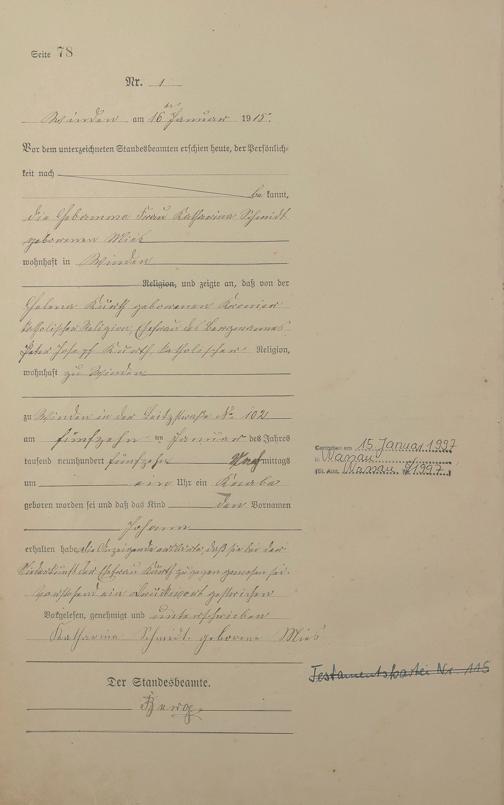 Seite 78
Nr. 1
Winden am 16ten Januar 1915.
Vor dem unterzeichneten Standesbeamten erschien heute, der Persönlich-
keit nach
be kannt,
die Hebamme Frau Katharina Schmidt
geborenen Mies
wohnhaft in Winden
Religion, und zeigte an, daß von der
Helena Kurth geborenen
katholischer Religion, Ehefrau des Bergmannes
Peter Josef Kurth, katholischer Religion,
wohnhaft zu Winden
zu Winden in der No 102
am fünfzehn ten Januar des Jahres
tausend neunhundert fünfzehn Nachmittags
um ein Uhr ein Knabe
geboren worden sei und daß das Kind den Vornamen
Johann
erhalten habe, die Anzeigende erklärte, daß sie bei der
Niederkunft der Ehefrau Kurth zugegen gewesen sei.
Vorstehend ein Druckwort gestrichen
Vorgelesen, genehmigt und unterschrieben
Katharina Schmidt geborene Mies
Der Standesbeamte.
Gestorben am 15 Januar 1997
in
(St. Amt 1997)
Testamentskartei Nr. 115